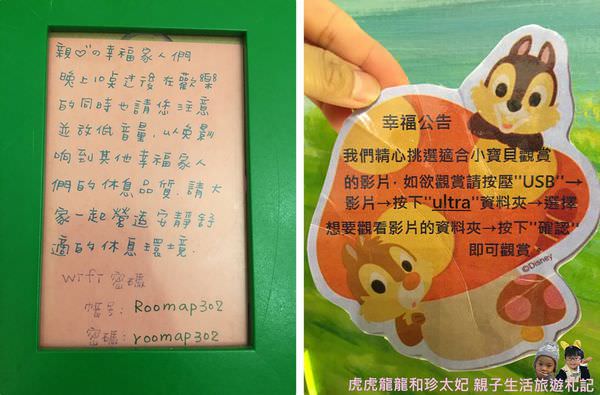 親♡の幸福家人們
晚上10點过後在歡樂
的同時也請您注意
並放低音量,以免影
响到其他幸福家人
們的休息品質.請大
家一起營造安靜舒
適的休息環境.
wifi 密碼
帳号:Roomap302
密碼:roomap302
幸福公告
我們精心挑選適合小寶貝觀賞
的影片.如欲觀賞請按壓"USB"→
影片→按下"ultra"資料夾→選擇
想要觀看影片的資料夾→按下"確認"
即可觀賞。
©Disney
虎虎龍龍和珍太妃 親子生活旅遊札記